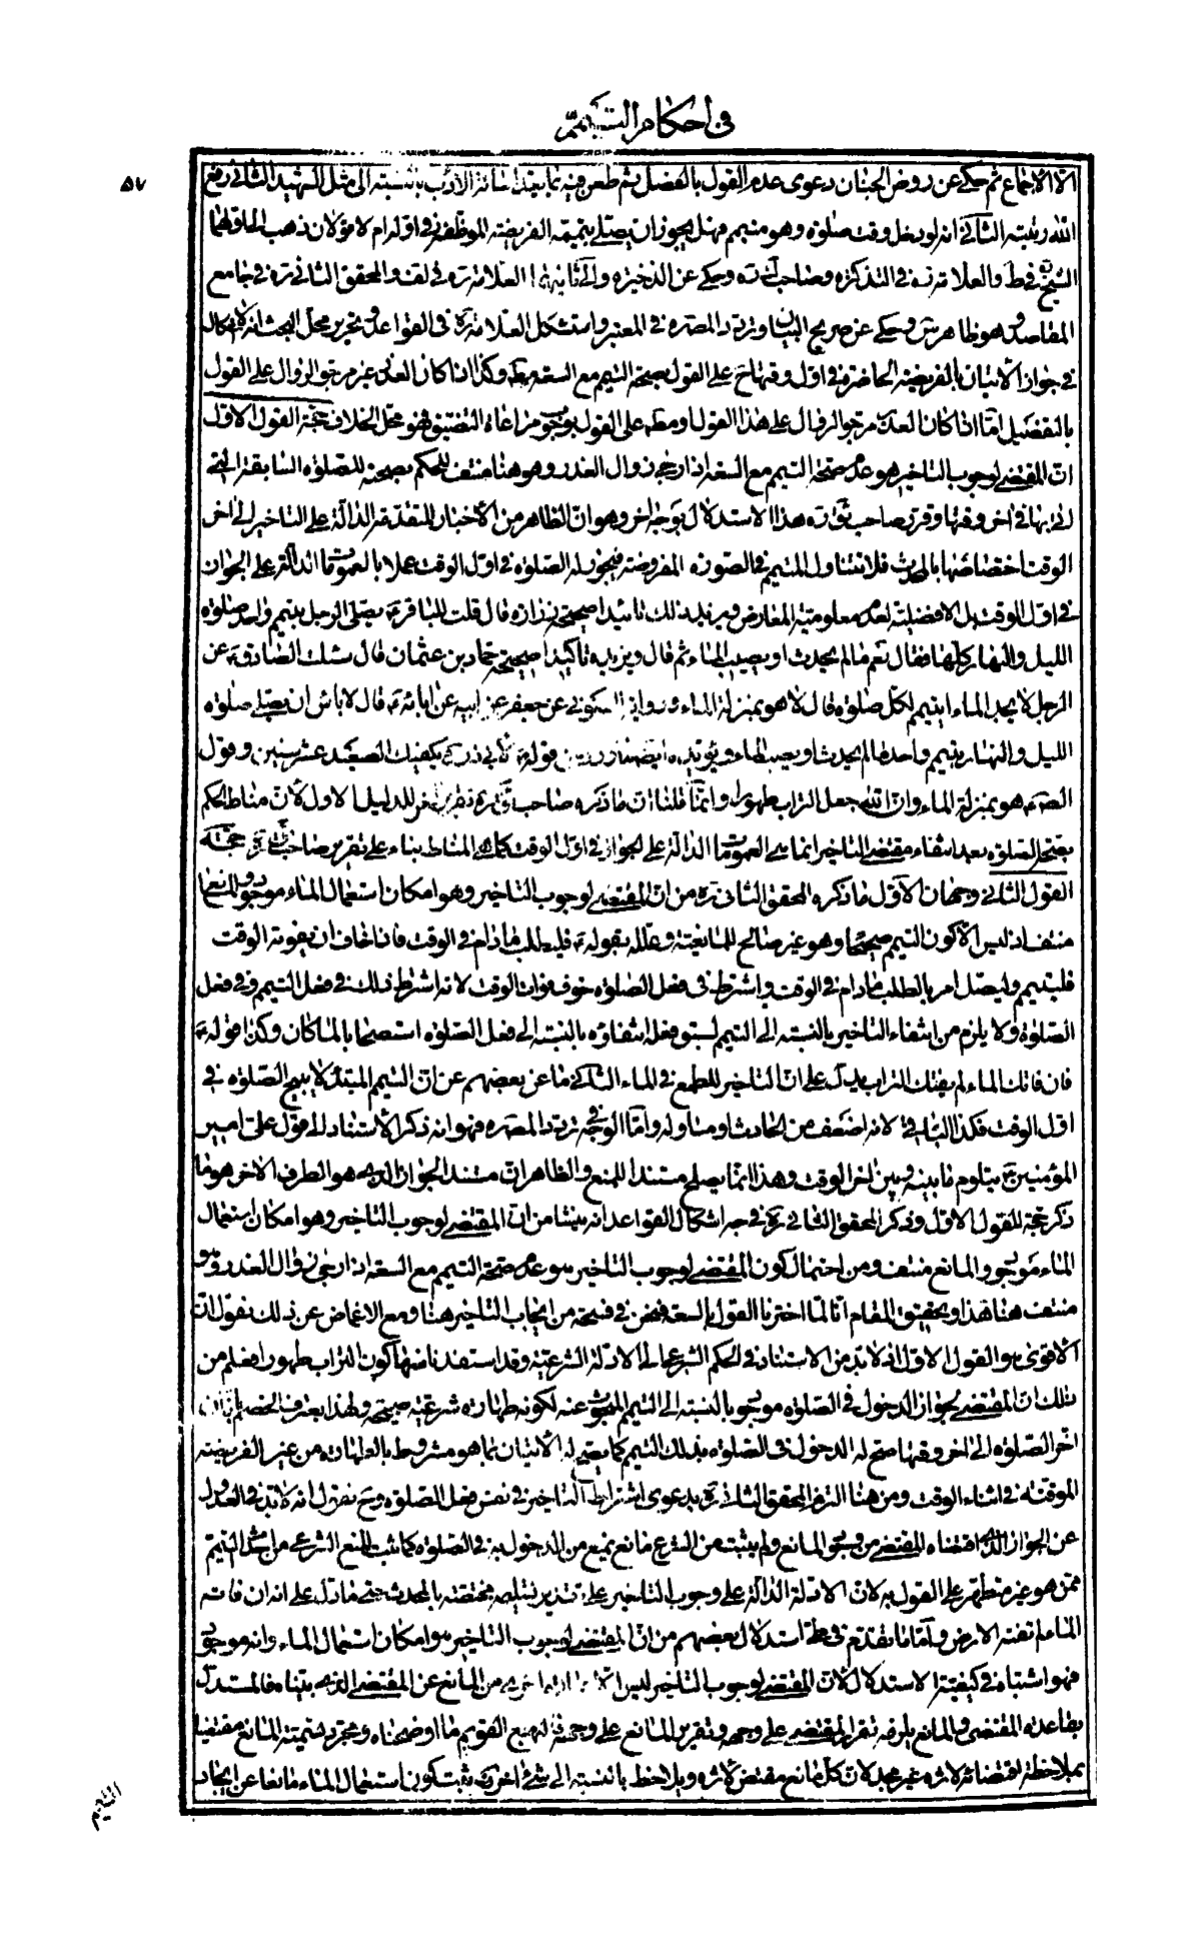 في احكام التيمم
٥٧
الا الاجماع ثم حكى عن روض الجنان دعوى عدم القول بالفصل ثم طعن فيه بما يعد اسائة الادب بالنسبة الى مثل الشهيد الثاني رفع
الله رتبته الثاني انه لو دخل وقت صلوة وهو متيمم فهل يجوز ان يصلي بتيممه الفريضة الموظفة في اوله ام لا قولان ذهب الى اولهما
الشيخ في ط والعلامة ره في التذكرة وصاحب ك ره وحكى عن الذخيرة والى ثانيهما العلامة ره في لف والمحقق الثاني ره في جامع
المقاصد وهو ظاهر وحكى عن صريح البيان وتردد المصره في المعتبر واستشكل العلامة ره في القواعد وتحرير محل البحث انه لا اشكال
في جواز الاتيان بالفريضة الحاضرة في اول وقتها ح على القول بصحة التيمم مع السعة مط وكذا اذا كان العذر غير مرجو الزوال على القول
بالتفصيل امّا اذا كان العذر مرجو الزوال على هذا القول او مط على القول بوجوب مراعاة التضيق فهو محل الخلاف حجة القول الاول
ان المقتضى لوجوب التاخير هو عدم صحة التيمم مع السعة اذا رجى زوال العذر وهو هنا منتف للحكم بصحته للصلوة السابقة التي
اتى بها في اخر وقتها وقرر صاحب ك ره هذا الاستدلال بوجه اخر وهو ان الظاهر من الاخبار المتقدمة الدالة على التاخير الى اخر
الوقت اختصاصها بالمحدث فلا تتناول المتيمم في الصورة المفروضة فيجوز له الصلوة في اول الوقت عملا بالعمومات الدالة على الجواز
في اول الوقت بل الافضلية لعدم معلومية المعارض ويزيد ذلك تاييدا صحيحة زرارة قال قلت للباقر ع يصلى الرجل بتيمم واحد صلوة
الليل والنهار كلها فقال نعم ما لم يحدث او يصيب الماء ثم قال ويزيده تاكيدا صحيحة حماد بن عثمان قال سئلت الصادق ع عن
الرجل لا يجد الماء ايتيمم لكل صلوة قال لا هو بمنزلة الماء ورواية السكوني عن جعفر عن ابيه عن ابائه ع قال لا باس ان يصلى صلوة
الليل والنهار بتيمم واحد ما لم يحدث او يصيب الماء ويؤيده ايضا ما ورد من قوله ع لابي ذر ره يكفيك الصعيد عشر سنين وقول
الص ع هو بمنزلة الماء وان الله جعل التراب طهورا وانما قلنا ان ما ذكره صاحب ك ره تقرير اخر للدليل الاول لان مناط الحكم
بصحة الصلوة بعد انتفاء مقتضى التاخير انما هي العمومات الدالة على الجواز في اول الوقت كما هي المناط بناء على تقرير صاحب ك ره حجة
القول الثاني وجهان الاول ما ذكره المحقق الثاني ره من ان المقتضى لوجوب التاخير وهو امكان استعمال الماء موجود والمانع
منتف اذ ليس الا كون التيمم صحيحا وهو غير صالح للمانعية وعلله بقوله ع فليطلب ما دام في الوقت فاذا خاف ان يفوته الوقت
فليتيمم وليصل امر بالطلب ما دام في الوقت واشترط في فعل الصلوة خوف فوات الوقت لانه اشترط ذلك في فعل التيمم وفي فعل
الصلوة ولا يلزم من انتفاء التاخير بالنسبة الى التيمم لسبق فعله انتفاؤه بالنسبة الى فعل الصلوة استصحابا لما كان وكذا قوله ع
فان فاتك الماء لم يفتك التراب يدل على ان التاخير للطمع في الماء الثاني ما عن بعضهم عن ان التيمم المبتدء لا يبيح الصلوة في
اول الوقت فكذا الباقي لانه اضعف من الحادث او مساو له وامّا الوجه في تردد المصره فهو انه ذكر الاستناد الى قول على امير
المؤمنين ع يتلوم ما بينه وبين اخر الوقت وهذا انما يصلح مستندا للمنع والظاهر ان مستند الجواز الذي هو الطرف الاخر هو ما
ذكر حجة للقول الاول وذكر المحقق الثاني ره في وجه اشكال القواعد انه ينشا من ان المقتضى لوجوب التاخير وهو امكان استعمال
الماء موجود والمانع منتف ومن احتمال كون المقتضى لوجوب التاخير هو عدم صحة التيمم مع السعة اذا رجى زوال العذر وهو
منتف هنا هذا وتحقيق المقام انا لما اخترنا القول بالسعة فنحن في فسحة من ايجاب التاخير هنا ومع الاغماض عن ذلك نقول ان
الاقوى هو القول الاول اذ لا بد من الاستناد في الحكم الشرعي الى الادلة الشرعية وقد استفدنا منها كون التراب طهورا فعلم من
ذلك ان المقتضى لجواز الدخول في الصلوة موجود بالنسبة الى التيمم المبحوث عنه لكونه طهارة شرعية صحيحة ولهذا يعترف الخصم بانه
اخر الصلوة الى اخر وقتها صح له الدخول في الصلوة بذلك التيمم كما يصح له الاتيان بما هو مشروط بالطهارة من غير الفريضة
الموقتة في اثناء الوقت ومن هنا التزم المحقق الثاني ره بدعوى اشتراط التاخير في نفس فعل الصلوة وح نقول انه لا بد في العدول
عن الجواز الذي اقتضاه المقتضى من وجود المانع ولم يثبت من الشرع مانع يمنع من الدخول به في الصلوة كما ثبت المنع الشرعي من احداث التيمم
ممن هو غير متطهر على القول به لان الادلة الدالة على وجوب التاخير على تقدير تسليمه مختصة بالمحدث حتى ما دل على انه ان فاته
الماء لم تفته الارض وامّا ما تقدم في طي استدلال بعضهم من ان المقتضى لوجوب التاخير هو امكان استعمال الماء وانه موجود
فهو اشتباه في كيفية الاستدلال لان المقتضى لوجوب التاخير ليس الا من المانع عن المقتضى الذي بيناه فالمستدل
بقاعدة المقتضى والمانع يلزمه تقرير المقتضى على وجهه وتقرير المانع على وجهه القويم ما اوضحناه ومجرد تسمية المانع مقتضيا
بملاحظة اقتضائه لاثره غير مجد لان كل مانع مقتض لاثره ويلاحظ بالنسبة الى شئ اخر ثبت كون استعمال الماء مانعا عن ايجاد
التيمم